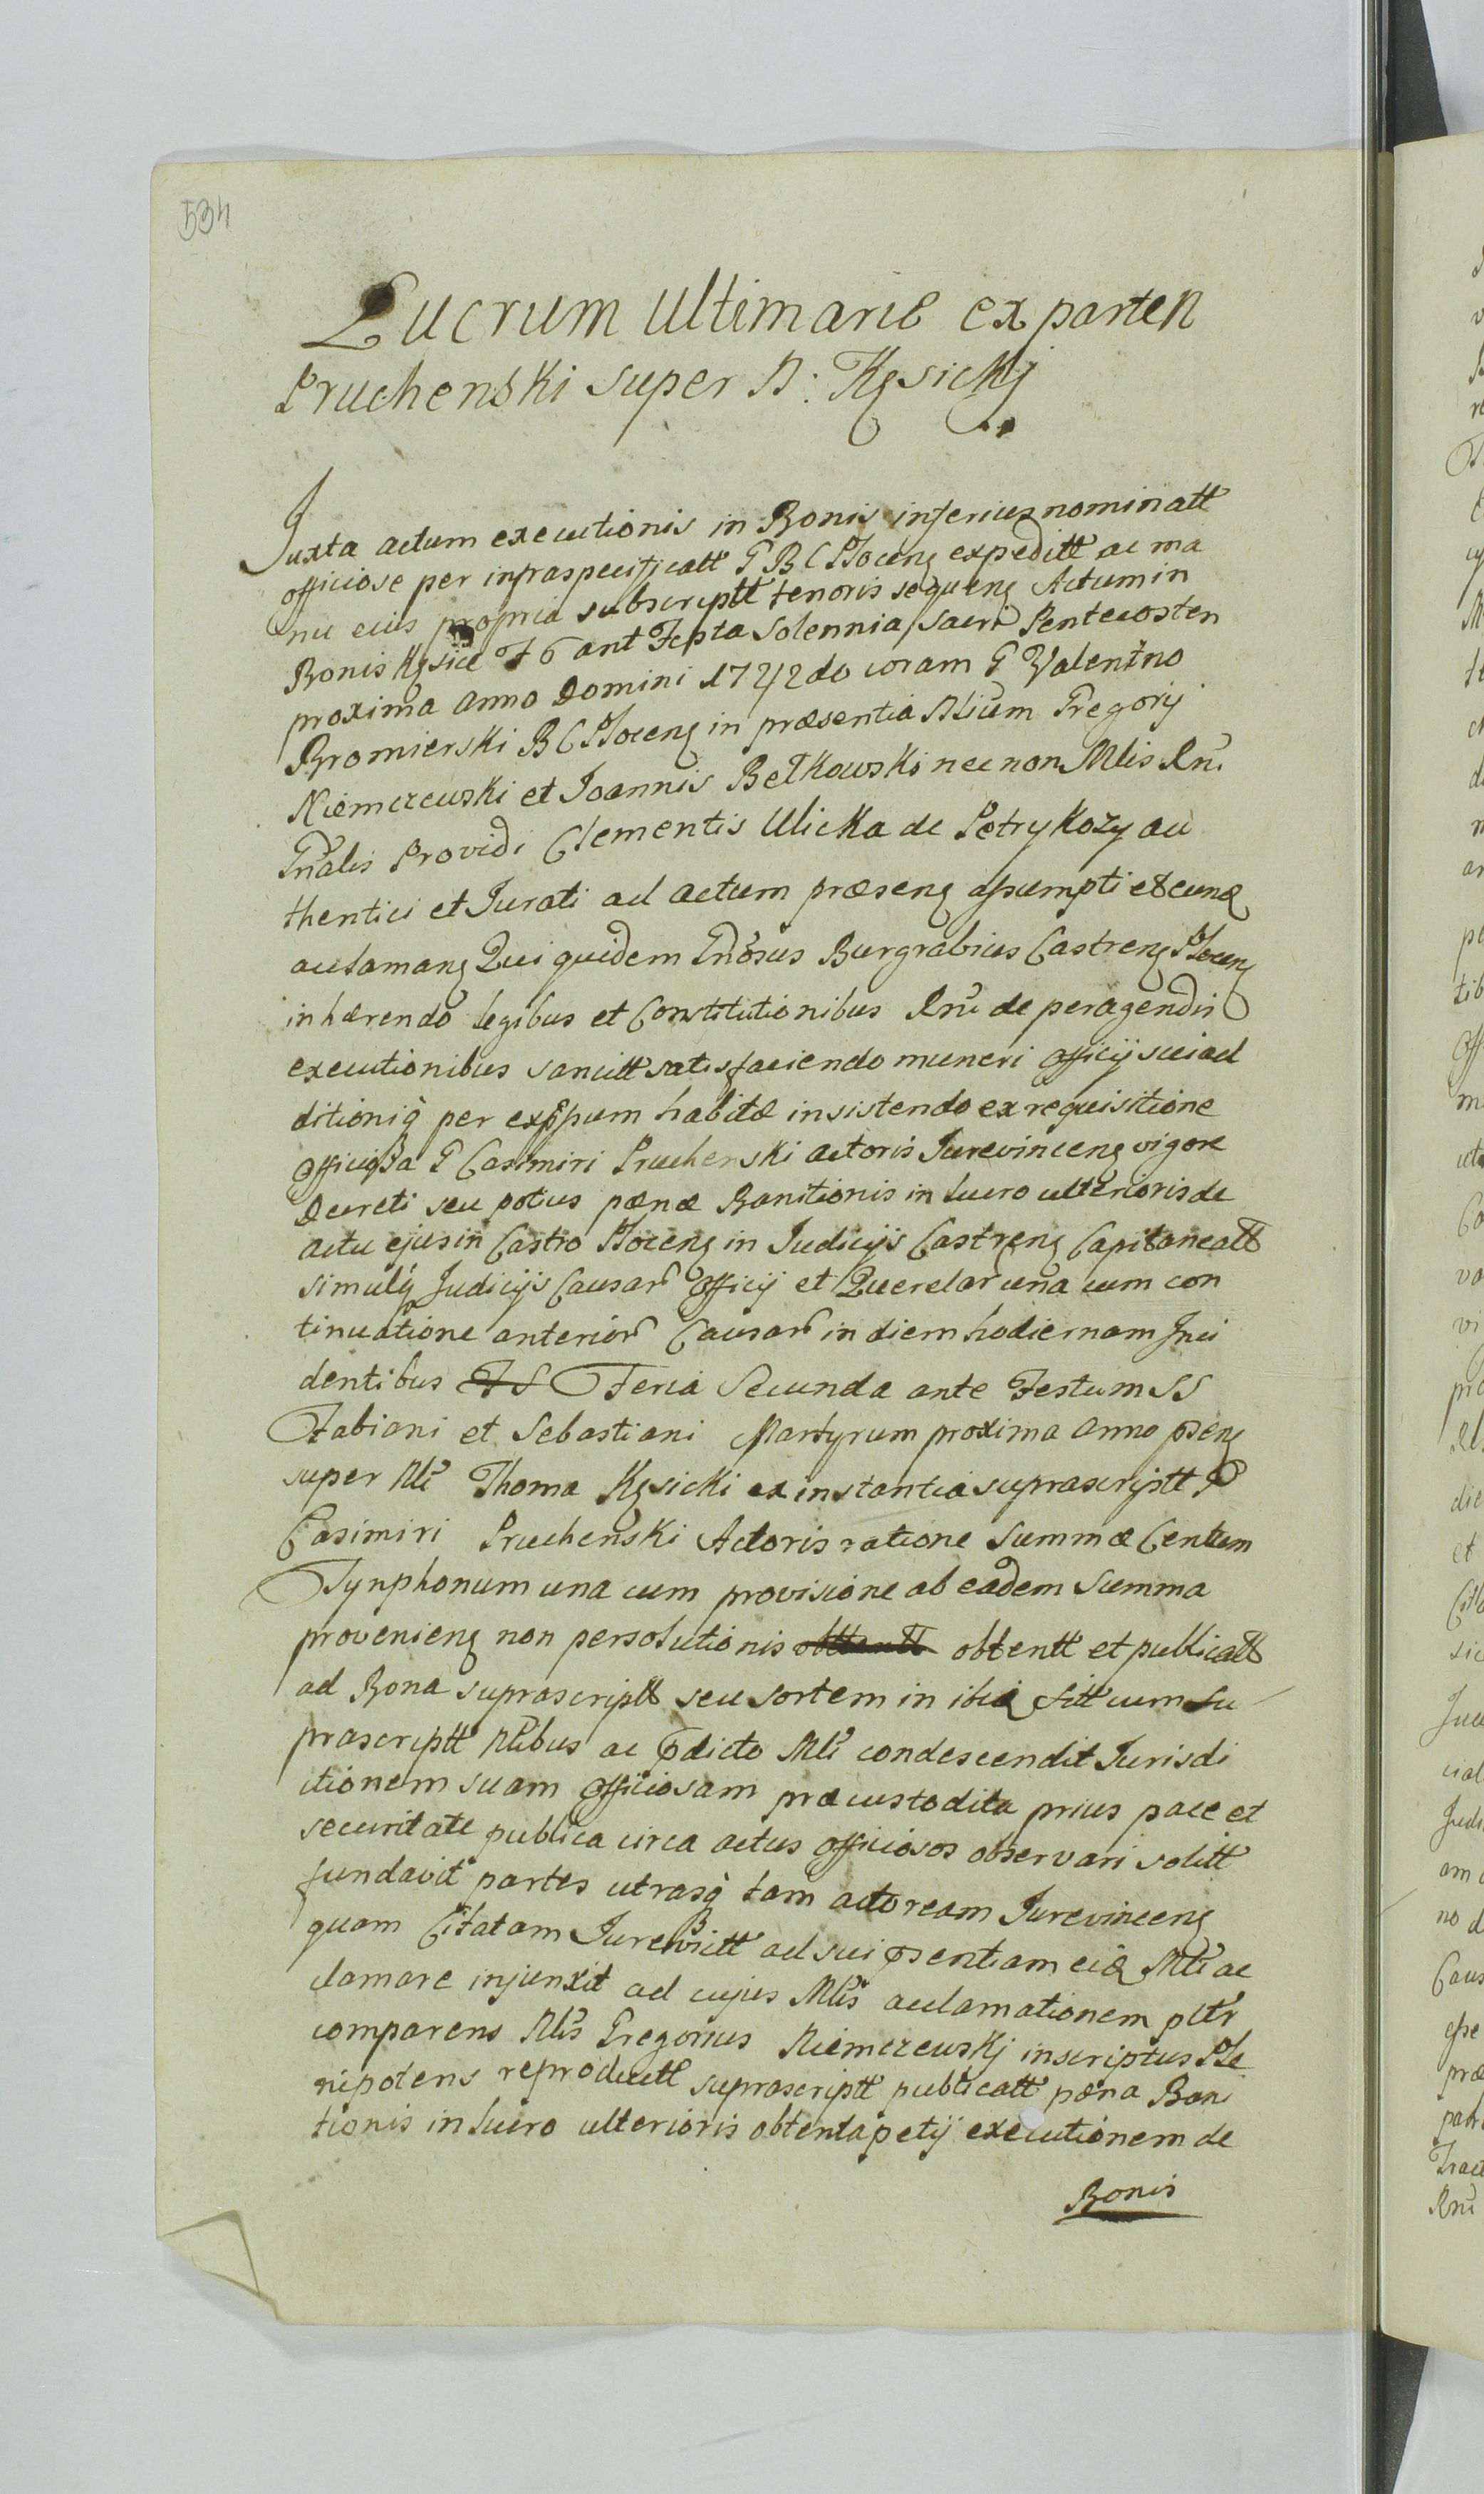 534
Lucrum Ultimarie ex parte N
Pruchenski super N: Kęsickj
Juxta actum executionis in Bonis inferius nominatt
officiose per infraspecificatt G B C Plocenȝ expeditt ac ma
nu eius propria subscriptt tenoris sequenȝ Actum in
Bonis Kęsice F 6 ant Festa Solennia Sacri Pentecosten
proxima Anno Domini 1742do coram G Valentino
Bromierski B C Plocenȝ in præsentia Nlium Gregorij
Niemczewski et Joannis Bełkowski nec non Mlis Rni
Gnalis Providi Clementis Ulicka de Petrykozy au
thentici et Jurati ad actum præsenȝ assumpti eumq
aclamanȝ Qui quidem Gnosus Burgrabius Castrenȝ Plocenȝ
inhærendo legibus et Constitutionibus Rni de peragendis
executionibus sancitt satisfaciendo muneri officij sui ad
ditioniq per exppum habitæ insistendo ex requisitione
G Casimiri Pruchenski actoris Jurevincenȝ vigore
Decreti seu potius pænæ Banitionis in lucro ulterioris de
actu ejus in Castro Plocenȝ in Judicijs Castrenȝ Capitaneatt
simulq Judicijs Causar officij et Querelar una cum con
tinuatione anterior Causar in diem hodiernam Inci
dentibus Feria Secunda ante Festum SS
Fabiani et Sebastiani Martyrum proxima anno psenȝ
super Nli Thoma Kęsicki ex instantia suprascriptt G
Casimiri Pruchenski Actoris ratione Summæ Centum
Tynphonum una cum provisione ab eadem Summa
provenienȝ non persolutionis obtentt et publicatt
ad Bona suprascriptt seu Sortem in ibiq sitt cum su
prascriptt Nlibus ac pdicto Mli condescendit Jurisdi
ctionem suam officiosam præcustodita prius pace et
securitate publica circa actus officiosos observari solitt
fundavit partes utrasq tam actoream Jurevincenȝ
quam Citatam Jurevictt ad sui psentiam eiq Mli ac
clamare injunxit ad cujus Mlis acclamationem pltr
comparens Nlis Gregorius Niemczewskj inscriptus Ple
nipotens reproductt suprascriptt publicatt pæna Bani
tionis in lucro ulterioris obtenta petij executionem de
Bonis